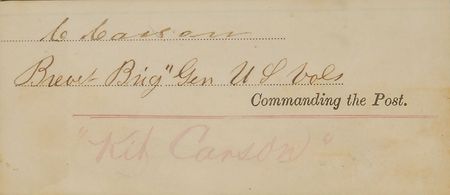 C Carson
Brevet Brig" Gen U S Vols
Commanding the Post.
"Kit Carson"